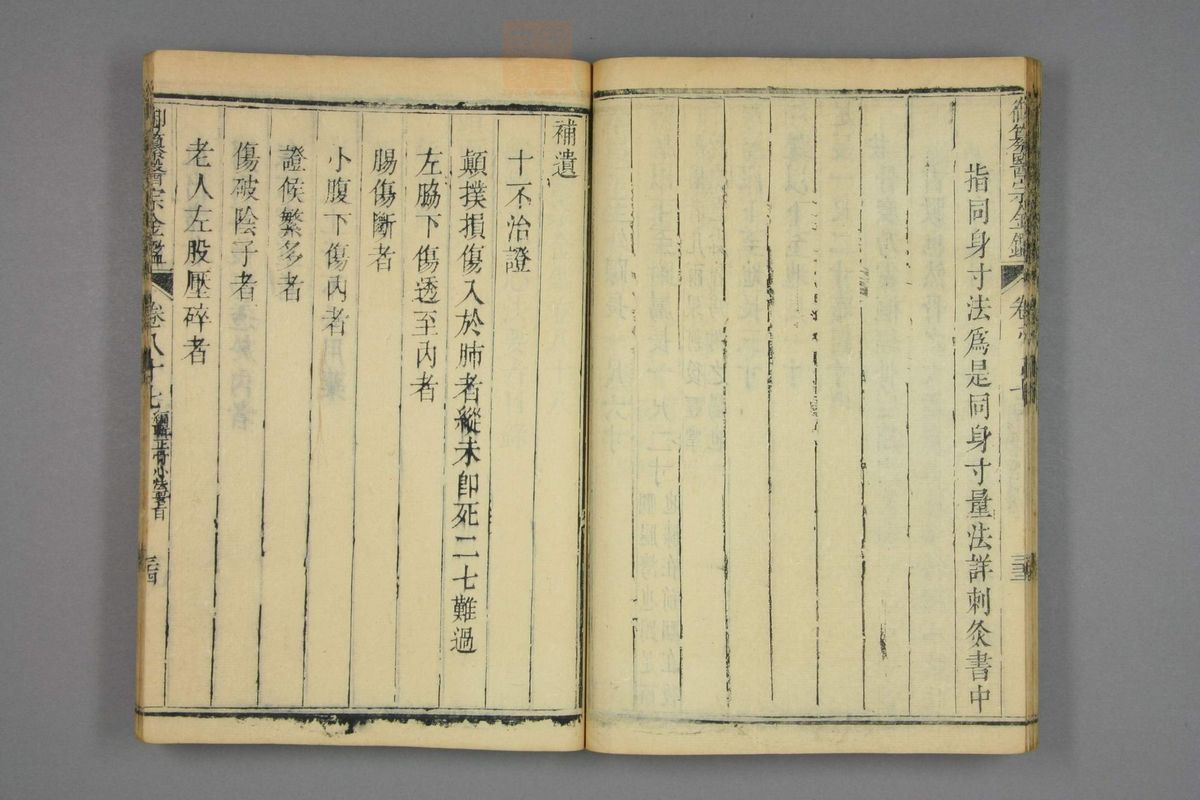 御纂醫宗金鑑
指同身寸法爲是同身寸量法詳刺灸書中
補遺
十不治證
顛撲損傷入於肺者縱未卽死二七難過
左脇下傷透至內者
腸傷斷者
小腹下傷內者
證候繁多者
傷破陰子者
老人左股壓碎者
御纂醫宗金鑑
卷八十七
三四